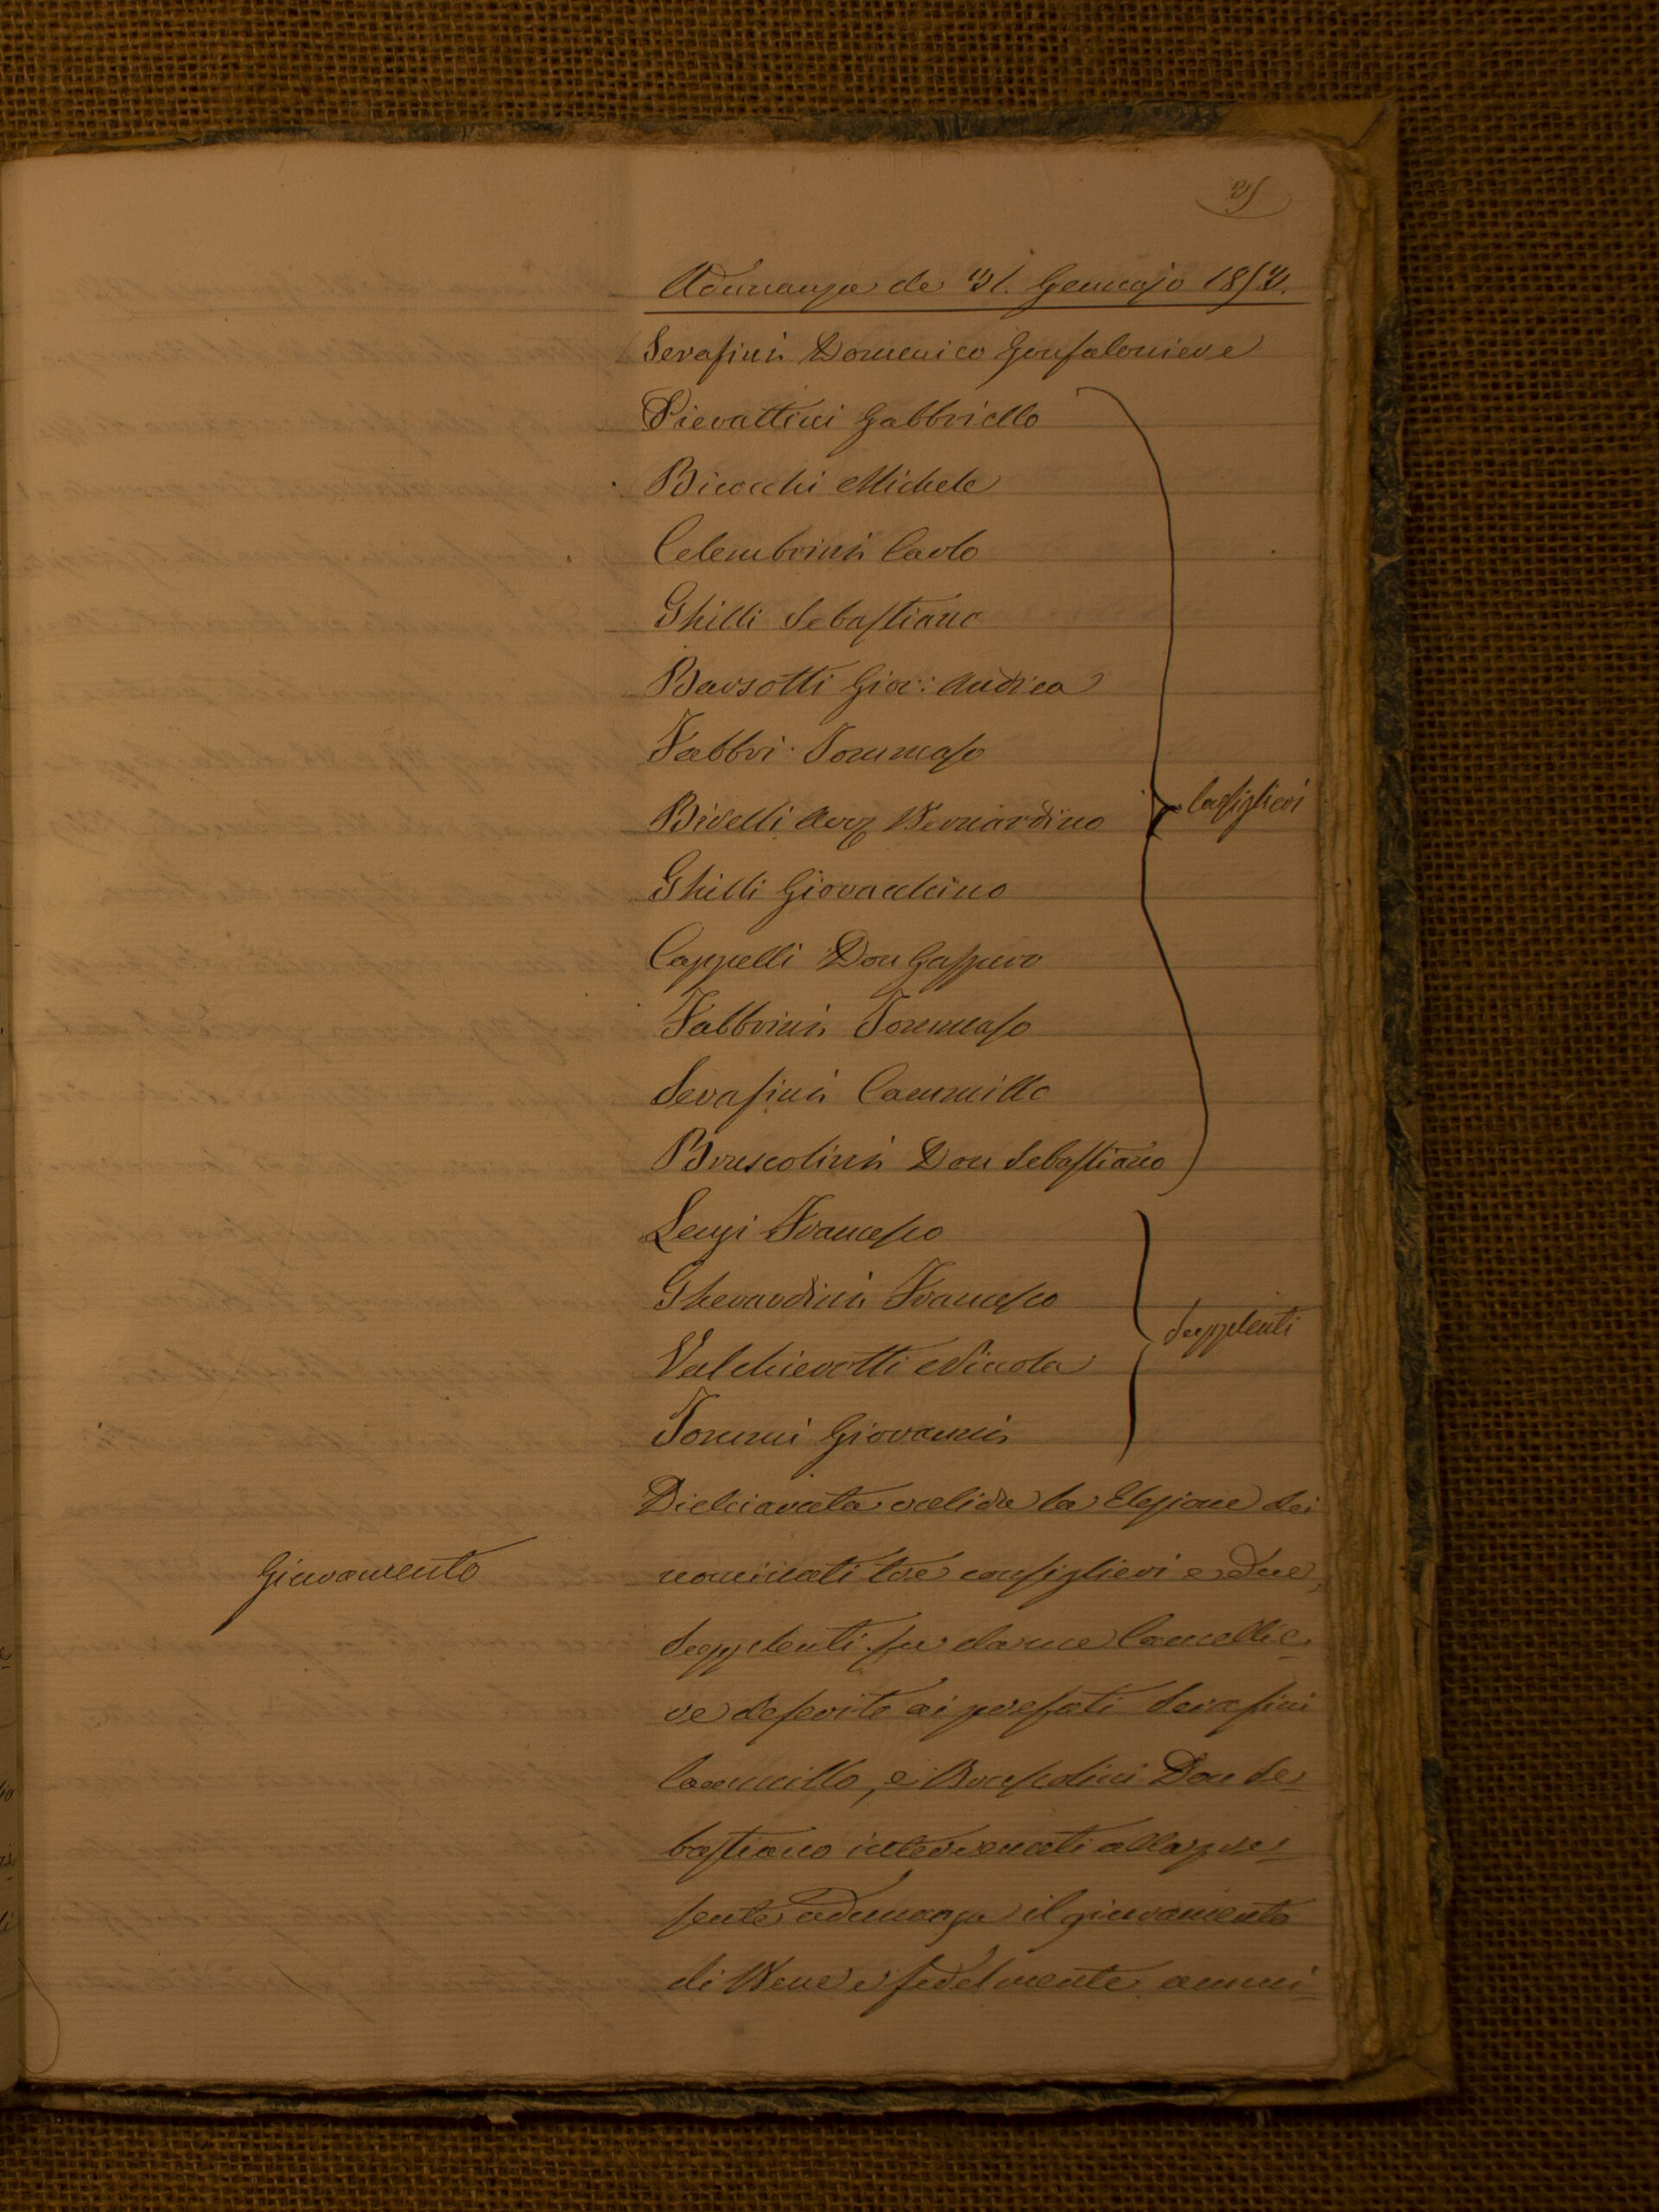 Adunanza de 31. Gennajo 1853.
Serafini Domenico Gonfaloniere
Pierattini Gabbriello
Bicocchi Michele
Celembrini Carlo
Ghilli Sebastiano
Barsotti Gio: Andrea
Fabbri Tommaso
Birelli Bernardino
Consiglieri
Ghilli Giovacchino
Cappelli Don Gasparo
Fabbrini Tommaso
Serafini Cammillo
Bruscolini Don Sebastiano
Lenzi Francesco
Gherardini Francesco
Supplenti
Valchierotti Nicola
Tommi Giovanni
Dichiarata valida la Elezione dei
Giuramento
nominati tre consiglieri e due
Supplenti fu da me Cancellie-
re deferito ai prefati Serafini
Cammillo, e Bruscolini Don Se-
bastiano intervenuti alla pre-
sente adunanza il giuramento
di Bene e fedelmente ammi-